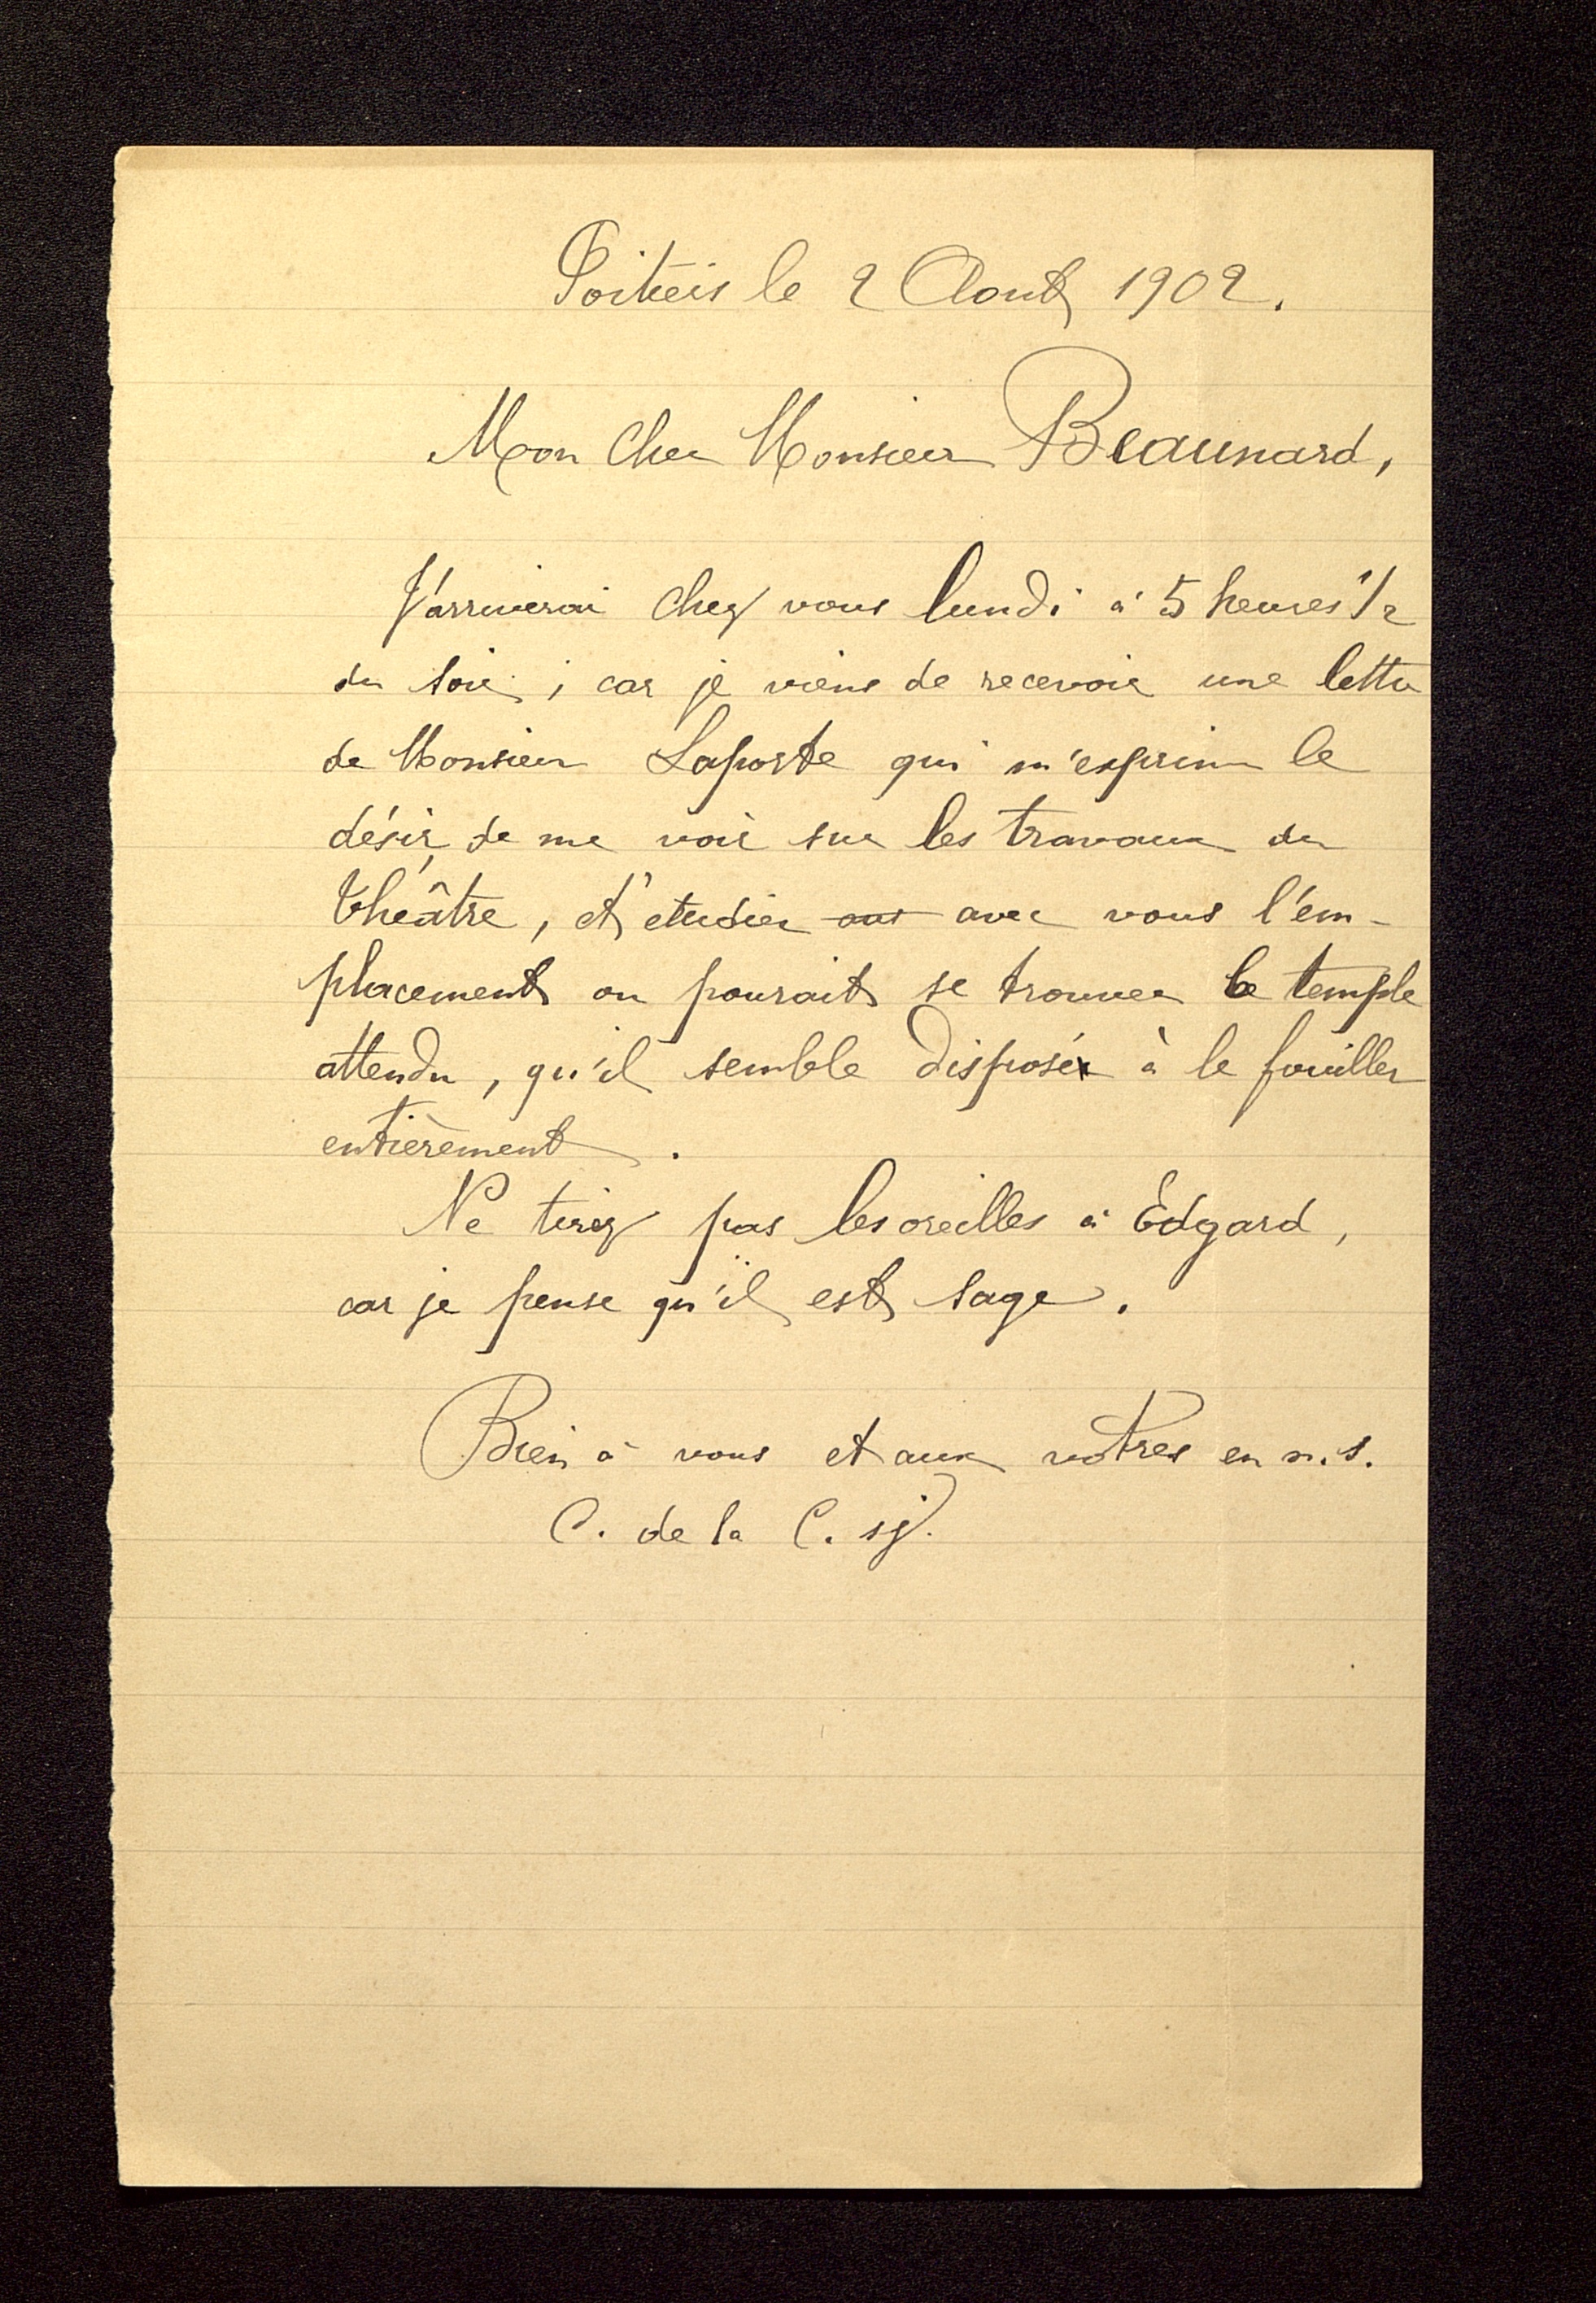 Poitiers le 2 Aout 1902.
Mon Cher Monsieur Beaumard,
J'arriverai chez vous lundi à 5 heures 1/2
du soir ; car je viens de recevoir une lettre
de Monsieur Laporte qui m'exprime le
désir de me voir sur les travaux du
théâtre, et d'etudier avec vous l'em-
placement ou pourait se trouver le temple
attendu, qu'il semble disposé à le fouiller
entièrement.
Ne tirez pas les oreilles à Edgard,
car je pense qu'il est sage.
Bien à vous et aux vôtres en n.s.
C. de la C. sj.